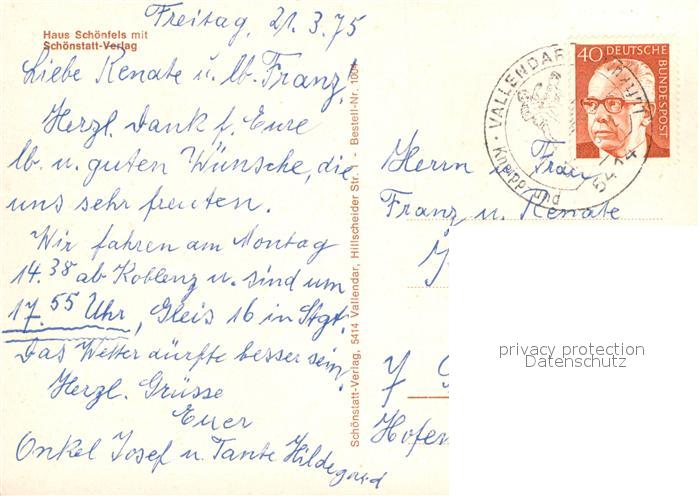 Haus Schönfels mit
Schönstatt-Verlag
Freitag, 21.3.75
Liebe Renate u. lb. Franz!
Herzl. Dank f. Eure
lb. u. guten Wünsche, die
uns sehr freuten.
Wir fahren am Montag
14.38 ab Koblenz u. sind um
17.55 Uhr, Gleis 16 in Stgt.
Das Wetter dürfte besser sein.
Herzl. Grüsse
Euer
Onkel Josef u. Tante Hildegard
Schönstatt-Verlag, 5414 Vallendar, Hillscheider Str. 1 - Bestell-Nr. 1004
VALLENDAR
5414
Kneipp- und
40 DEUTSCHE
BUNDESPOST
Herrn u. Frau
Franz u. Renate
7
Hofen
privacy protection
Datenschutz